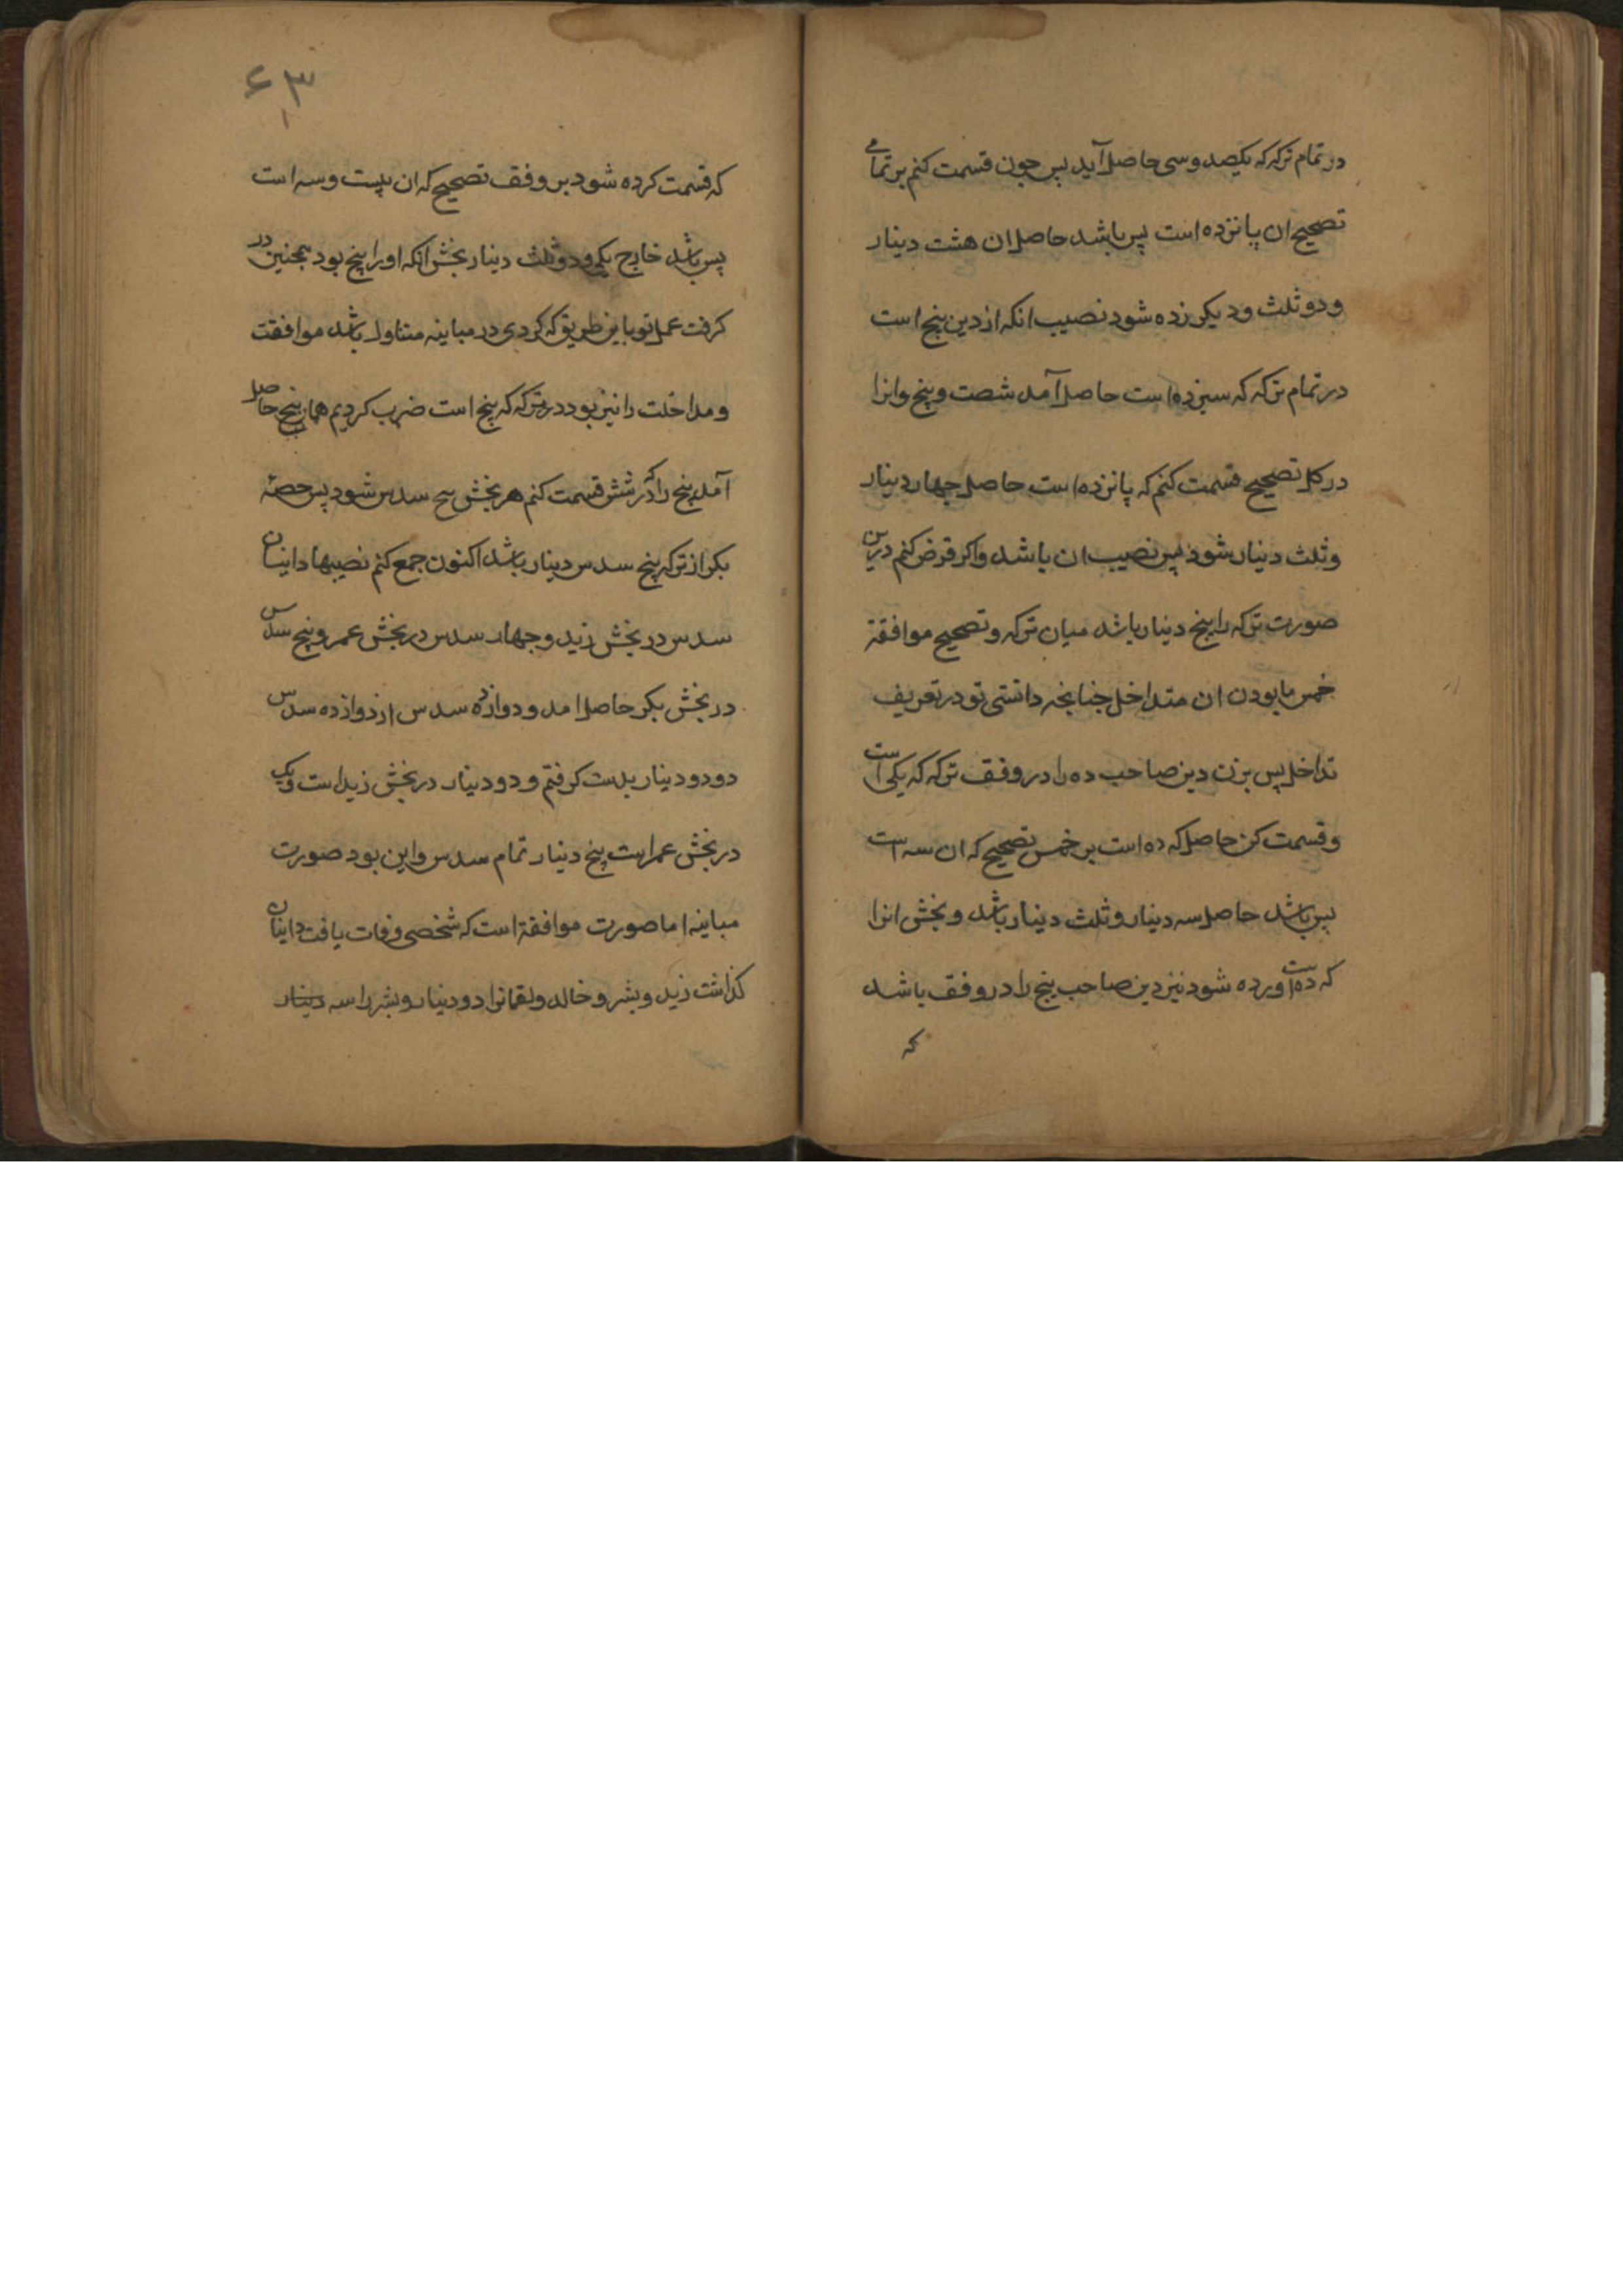 در تمام ترکه که یکصد و سی حاصل آید پس چون قسمت کنم بر تمامی
تصحیح ان پانزده است پس باشد حاصل ان هشت دینار
و دو ثلث و دیکر زده شود نصیب انکه از دین پنج است
در تمام ترکه که سیزده است حاصل آمد شصت و پنج وانرا
در کل تصحیح قسمت کنم که پانزده است حاصل چهار دینار
و ثلث دینار شود پس نصیب ان باشد واکر فرض کنم درین
صورت ترکه را پنج دینار باشد میان ترکه و تصحیح موافقة
خمس با بودن ان متداخل چنانچه دانستی تو در تعریف
تداخل پس بزن دین صاحب ده را در وفق ترکه که یکی است
و قسمت کن حاصل که ده است بر خمس تصحیح که ان سه است
پس باشد حاصل سه دینار و ثلث دینار باشد و بخش انرا
که ده است اورده شود نیز دین صاحب پنج را در وفق باشد
که
۶۳
که قسمت کرده شود بر وفق تصحیح که ان بیست و سه است
پس باشد خارج یکی و دو ثلث دینار بخش انکه اورا پنج بود همچنین در
کرفت عمل تو باین طریق که کردی در مباینه متناول باشد موافقت
و مداخلت را نیز بود در ترکه که پنج است ضرب کردیم همان پنج حاصل
آمد پنج را اکر شش قسمت کنم هر بخش سدس شود پس حصه
بکر از ترکه پنج سدس دینار باشد اکنون جمع کنم نصیبها داینان
سدس در بخش زید و چهار سدس در بخش عمر و پنج سدس
در بخش بکر حاصل امد و دوازده سدس از دوازده سدس
دو دو دینار بدست کرفتم و دو دینار در بخش زید است ویک
در بخش عمر است پنج دینار تمام سدس واین بود صورت
مباینه اما صورت موافقة است که شخصی وفات یافت داینان
کذاشت زید و بشر و خالد و لقمانرا دو دینار و بشر را سه دینار